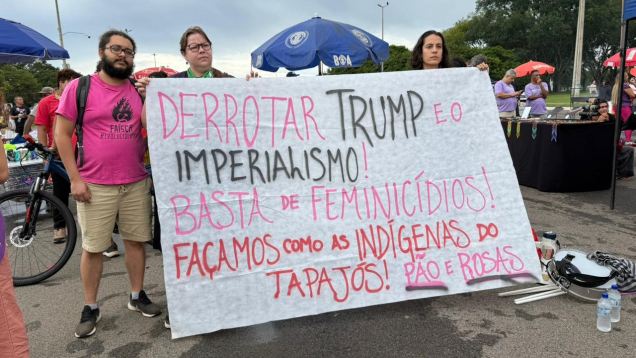 DERROTAR TRUMP E O
IMPERIALISMO!
BASTA DE FEMINICÍDIOS!
FAÇAMOS COMO AS INDÍGENAS DO
TAPAJÓS! PÃO E ROSAS
FAÍSCA